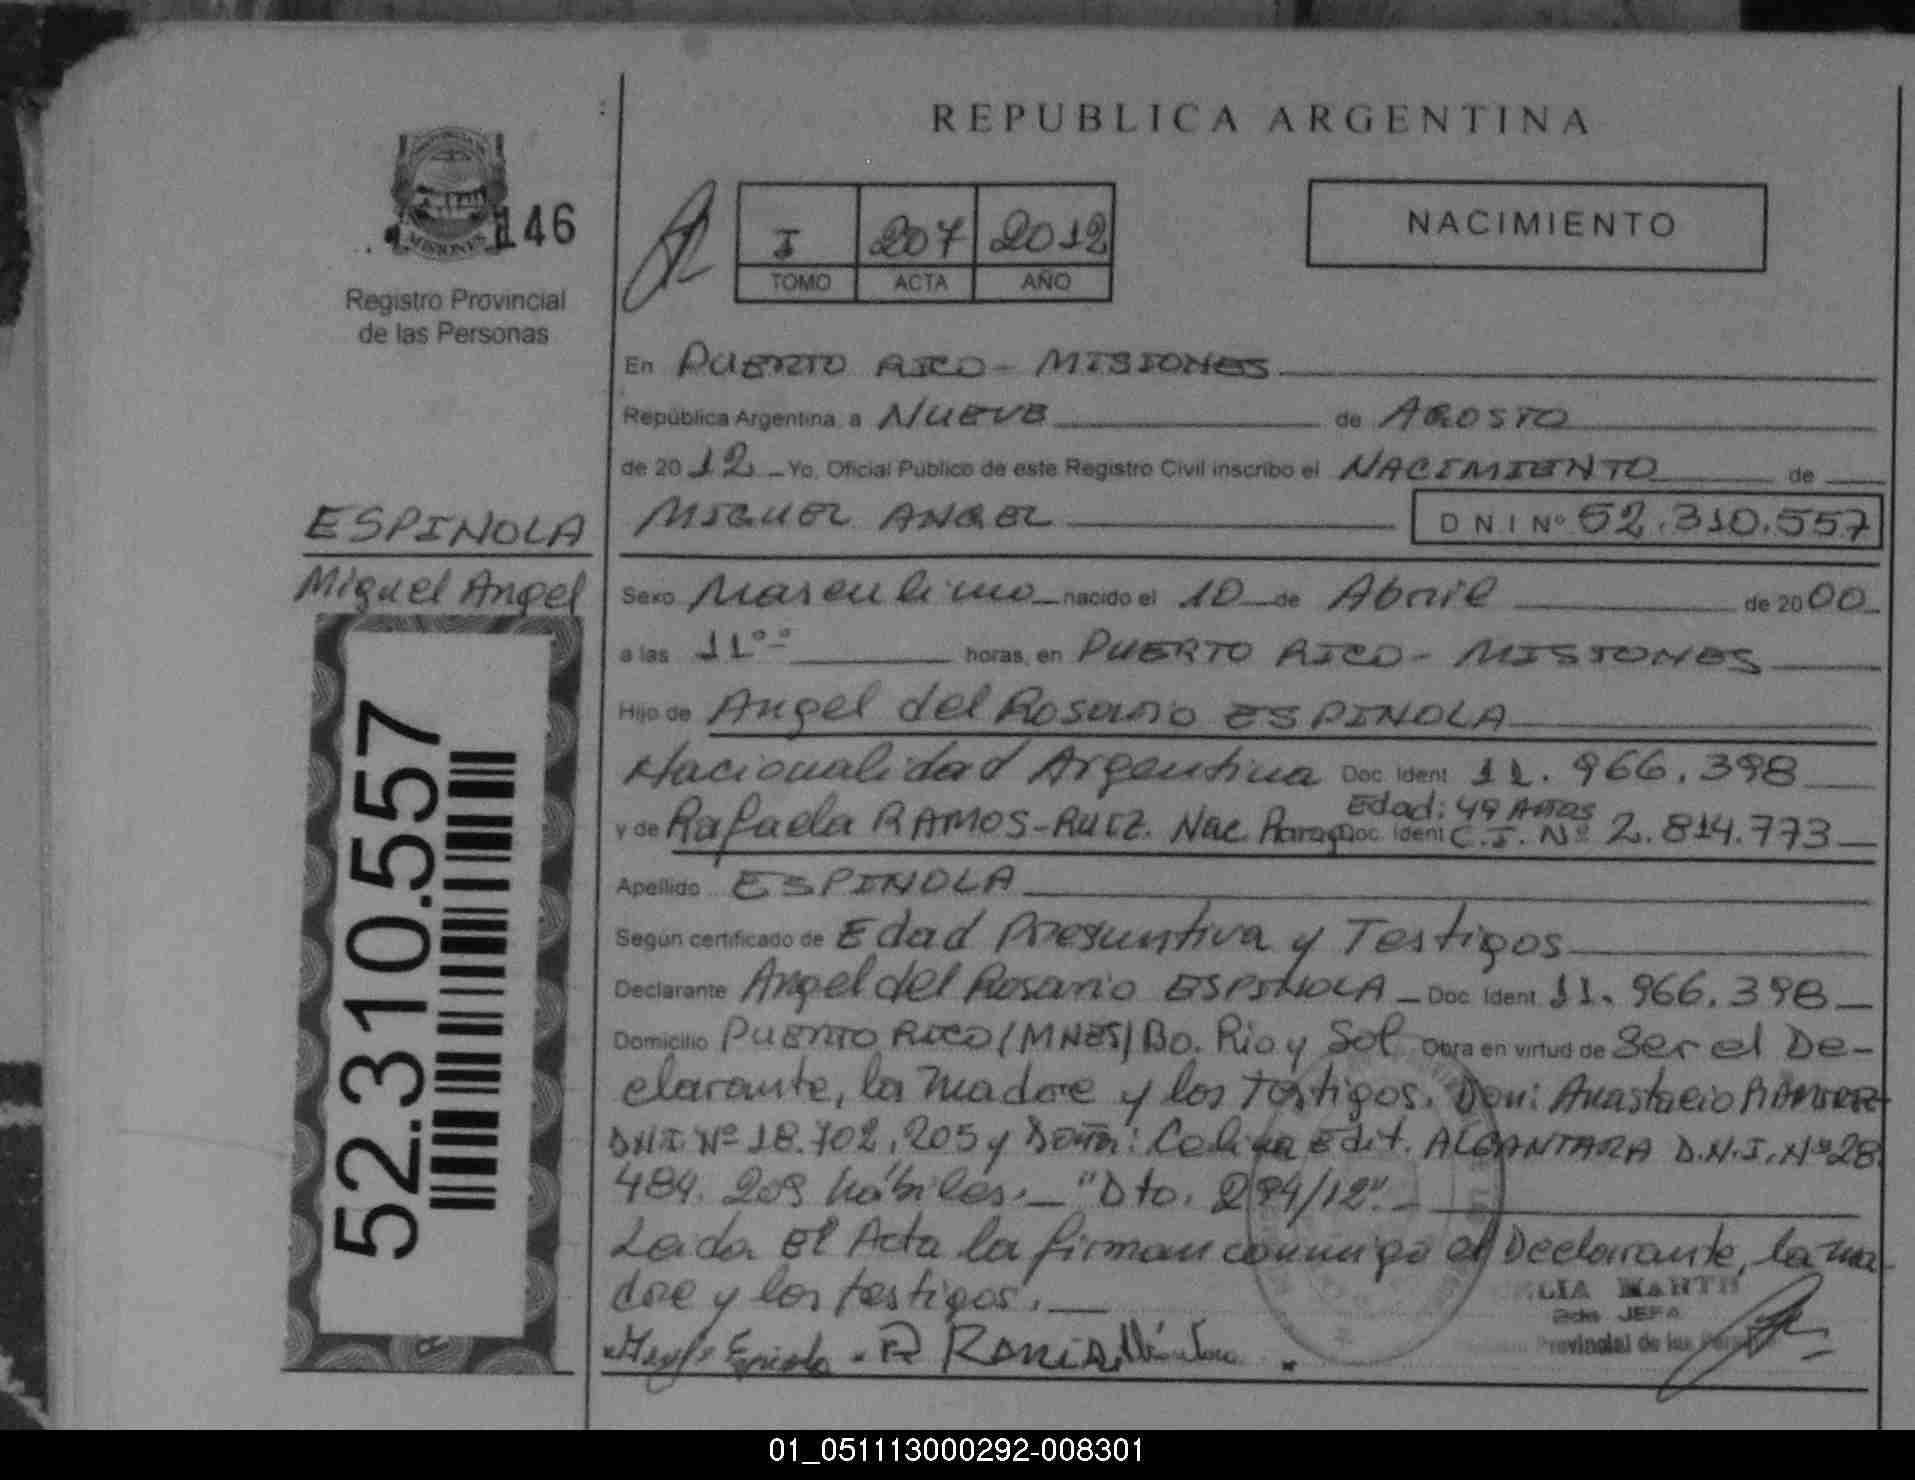 REPUBLICA ARGENTINA
146
MISIONES
Registro Provincial
de las Personas
I 207 2012
TOMO ACTA AÑO
NACIMIENTO
En PUERTO RICO - MISIONES
República Argentina, a NUEVE de AGOSTO
de 2012 Yo, Oficial Público de este Registro Civil inscribo el NACIMIENTO de
MIGUEL ANGEL DNI Nº 52.310.557
ESPINOLA
Miguel Angel
52.310.557
Sexo Masculino nacido el 10 de Abril de 2000
a las 11°° horas, en PUERTO RICO - MISIONES
Hijo de Angel del Rosario ESPINOLA
Nacionalidad Argentina Doc. Ident 11.966.398
Edad: 49 AÑOS
y de Rafaela RAMOS-RUIZ. Nac. Parag Doc. Ident C.I. Nº 2.814.773
Apellido ESPINOLA
Según certificado de Edad Presuntiva y Testigos
Declarante Angel del Rosario ESPINOLA Doc. Ident 11.966.398
Domicilio PUERTO RICO (MNES) Bo. Rio y Sol Obra en virtud de Ser el De-
clarante, la madre y los Testigos. Don: Anastacio RAMIREZ
DNI. Nº 18.702.205 y Doña: Celina Edit. ALCANTARA D.N.I. Nº 28.
484.209 hábiles. "Dto. 294/12".
Leida El Acta la firman conmigo el Declarante, la ma-
dre y los testigos.
JEFA
Provincial de las
01_051113000292-008301